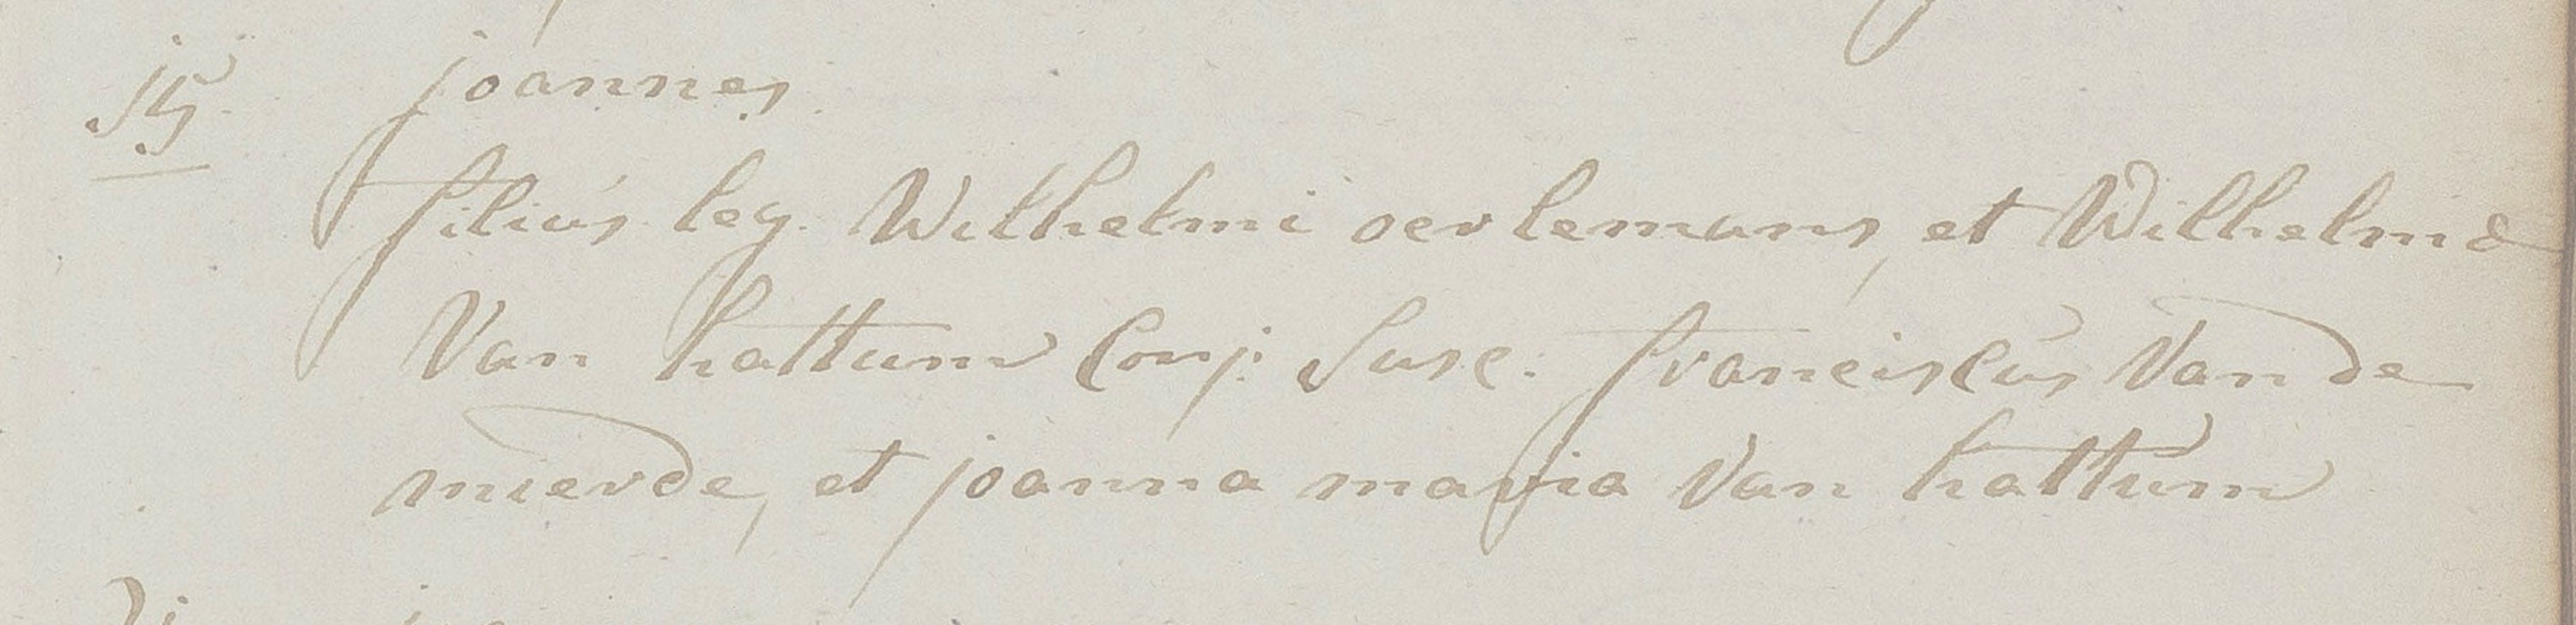 15 joannes
filius leg. Wilhelmi oerlemans, et Wilhelmæ
Van hattum Conj: Susc: franciscus Van de
mierde, et joanna maria Van hattum